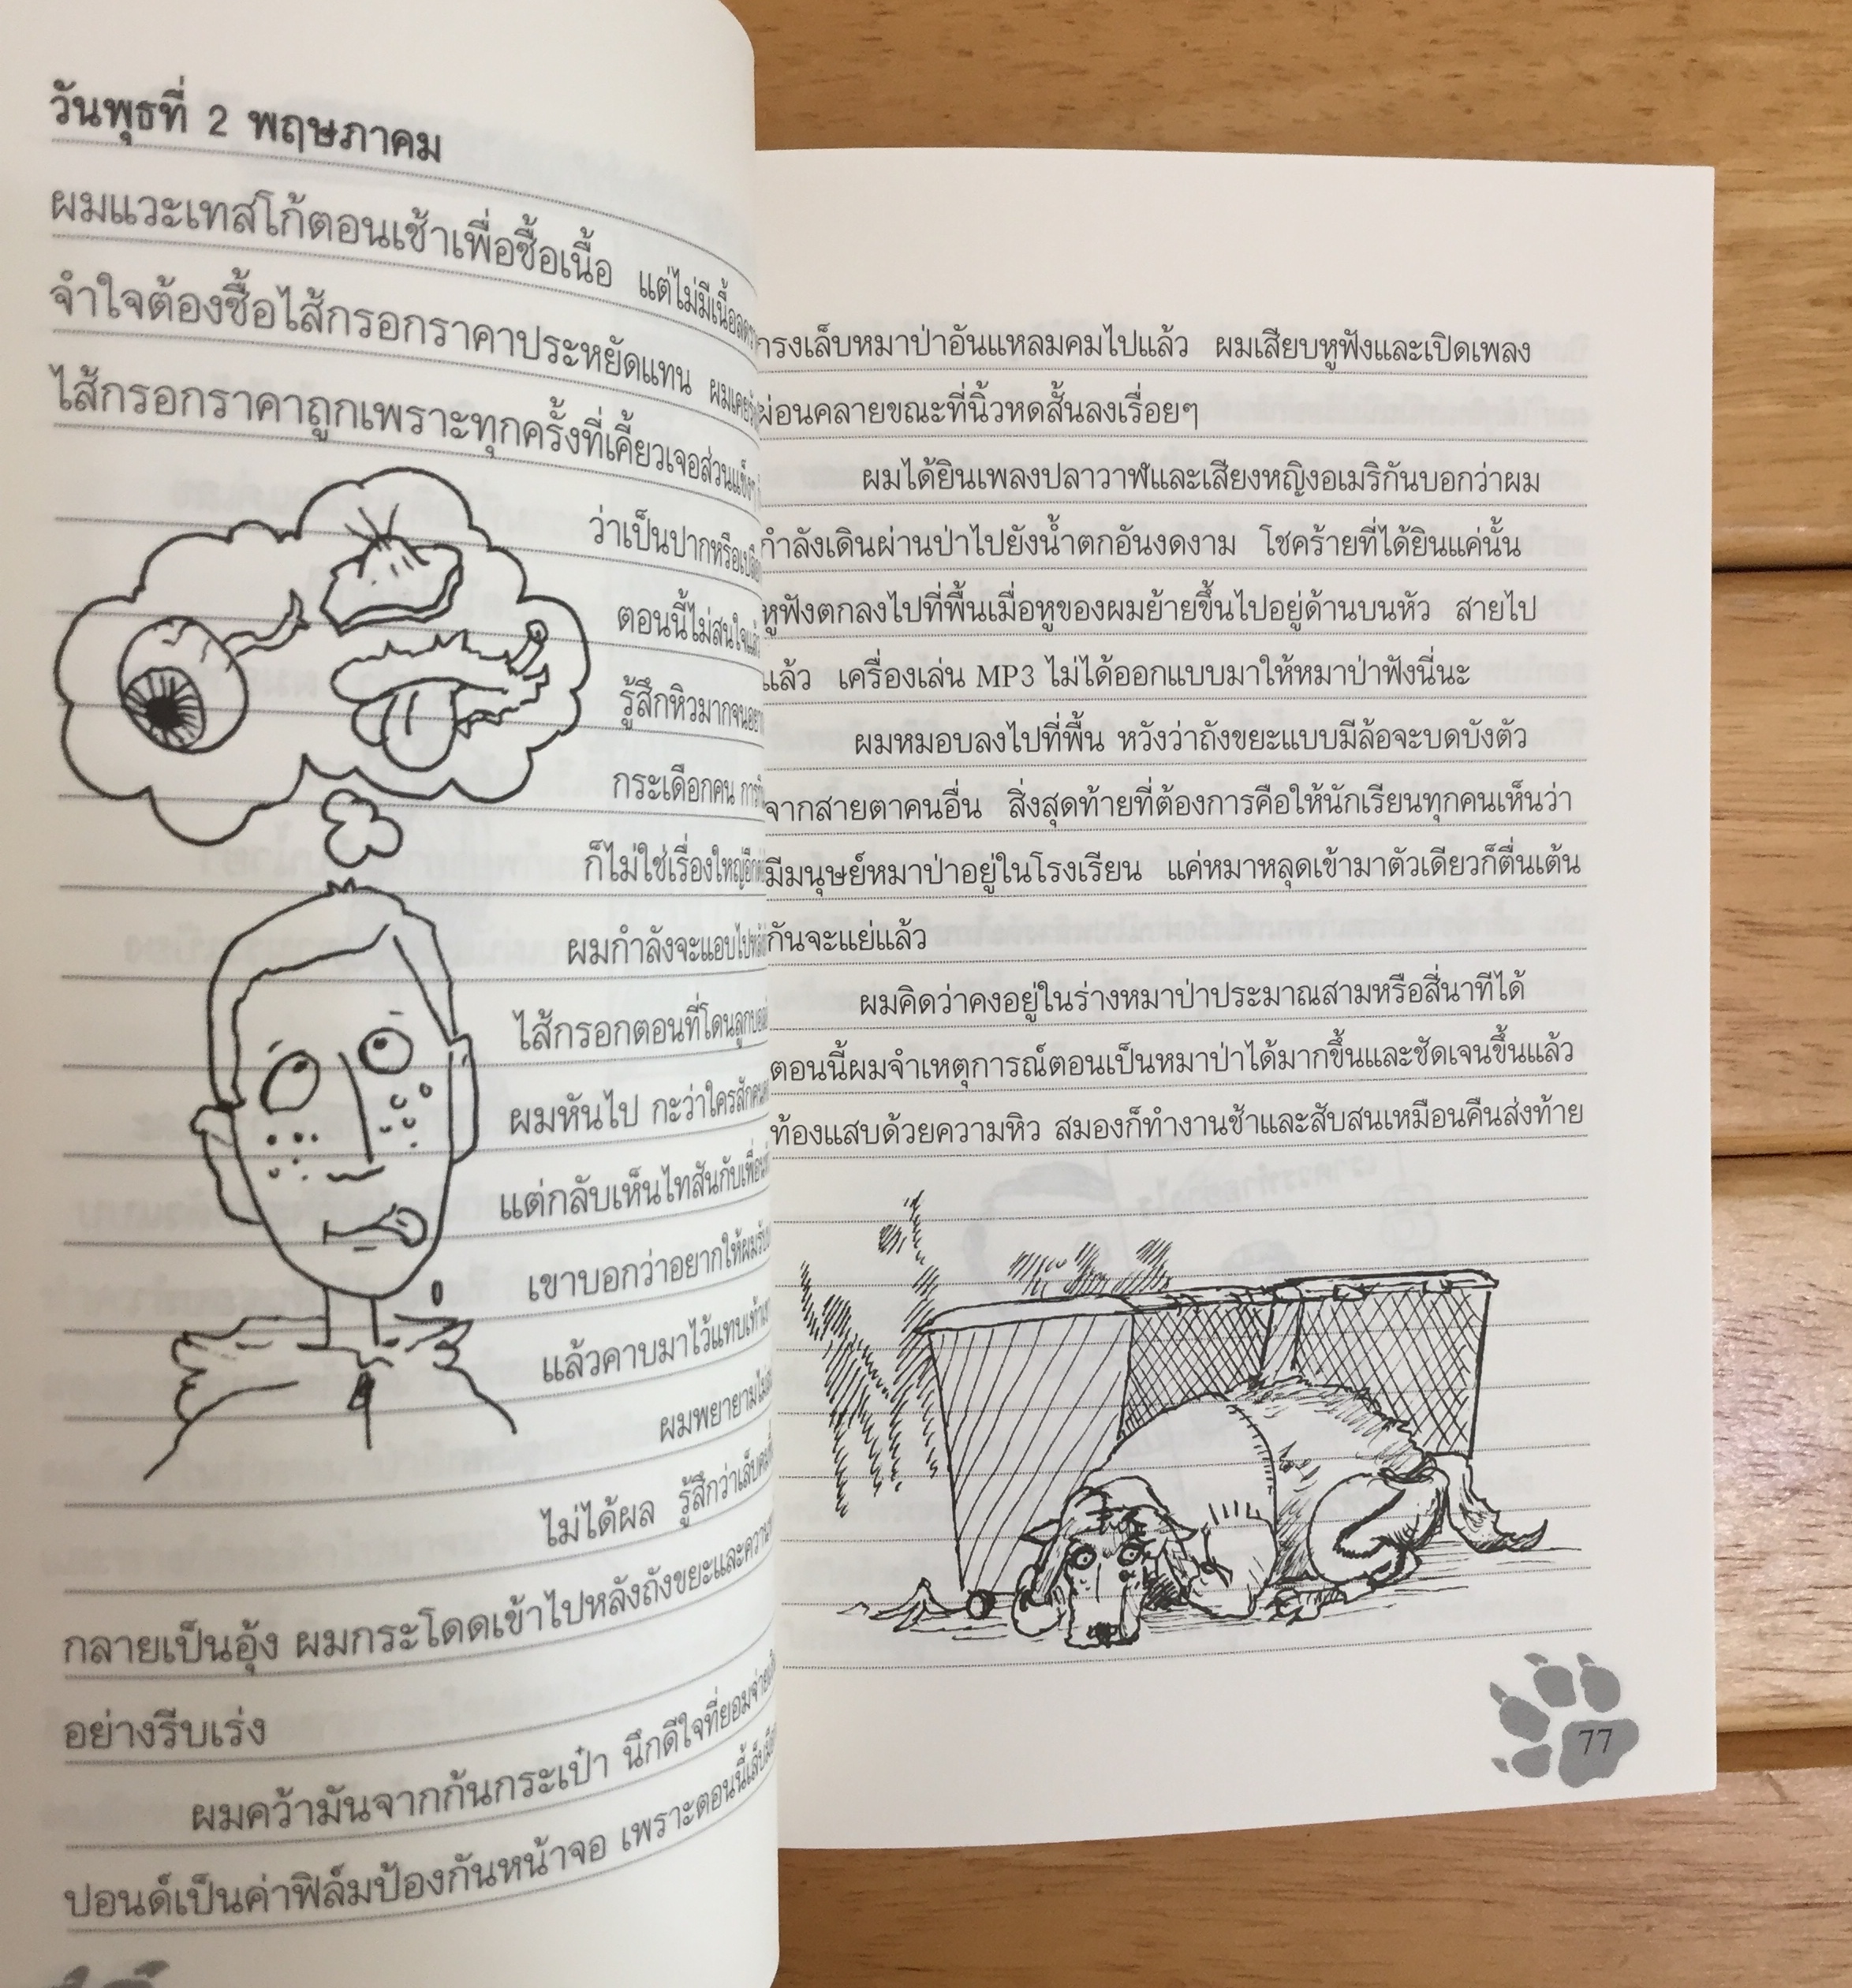 วันพุธที่ 2 พฤษภาคม
ผมแวะเทสโก้ตอนเช้าเพื่อซื้อเนื้อ แต่ไม่มีเนื้อ
จำใจต้องซื้อไส้กรอกราคาประหยัดแทน ผมเคย
ไส้กรอกราคาถูกเพราะทุกครั้งที่เคี้ยวเจอส่วนแข็งๆ
ว่าเป็นปากหรือ
ตอนนี้ไม่สนใจ
รู้สึกหิวมากจน
กระเดือกคน
ก็ไม่ใช่เรื่องใหญ่อีก
ผมกำลังจะแอบไป
ไส้กรอกตอนที่โดนลูกบอล
ผมหันไป กะว่าใครสักคน
แต่กลับเห็นไทสันกับเพื่อน
เขาบอกว่าอยากให้ผม
แล้วคาบมาไว้แทบเท้า
ผมพยายาม
ไม่ได้ผล รู้สึกว่าเล็บ
กลายเป็นอุ้ง ผมกระโดดเข้าไปหลังถังขยะและ
อย่างรีบเร่ง
ผมคว้ามันจากก้นกระเป๋า นึกดีใจที่ยอมจ่าย
ปอนด์เป็นค่าฟิล์มป้องกันหน้าจอ เพราะตอนนี้เล็บ
กรงเล็บหมาป่าอันแหลมคมไปแล้ว ผมเสียบหูฟังและเปิดเพลง
ผ่อนคลายขณะที่นิ้วหดสั้นลงเรื่อยๆ
ผมได้ยินเพลงปลาวาฬและเสียงหญิงอเมริกันบอกว่าผม
กำลังเดินผ่านป่าไปยังน้ำตกอันงดงาม โชคร้ายที่ได้ยินแค่นั้น
หูฟังตกลงไปที่พื้นเมื่อหูของผมย้ายขึ้นไปอยู่ด้านบนหัว สายไป
แล้ว เครื่องเล่น MP3 ไม่ได้ออกแบบมาให้หมาป่าฟังนี่นะ
ผมหมอบลงไปที่พื้น หวังว่าถังขยะแบบมีล้อจะบดบังตัว
จากสายตาคนอื่น สิ่งสุดท้ายที่ต้องการคือให้นักเรียนทุกคนเห็นว่า
มีมนุษย์หมาป่าอยู่ในโรงเรียน แค่หมาหลุดเข้ามาตัวเดียวก็ตื่นเต้น
กันจะแย่แล้ว
ผมคิดว่าคงอยู่ในร่างหมาป่าประมาณสามหรือสี่นาทีได้
ตอนนี้ผมจำเหตุการณ์ตอนเป็นหมาป่าได้มากขึ้นและชัดเจนขึ้นแล้ว
ท้องแสบด้วยความหิว สมองก็ทำงานช้าและสับสนเหมือนคืนส่งท้าย
77